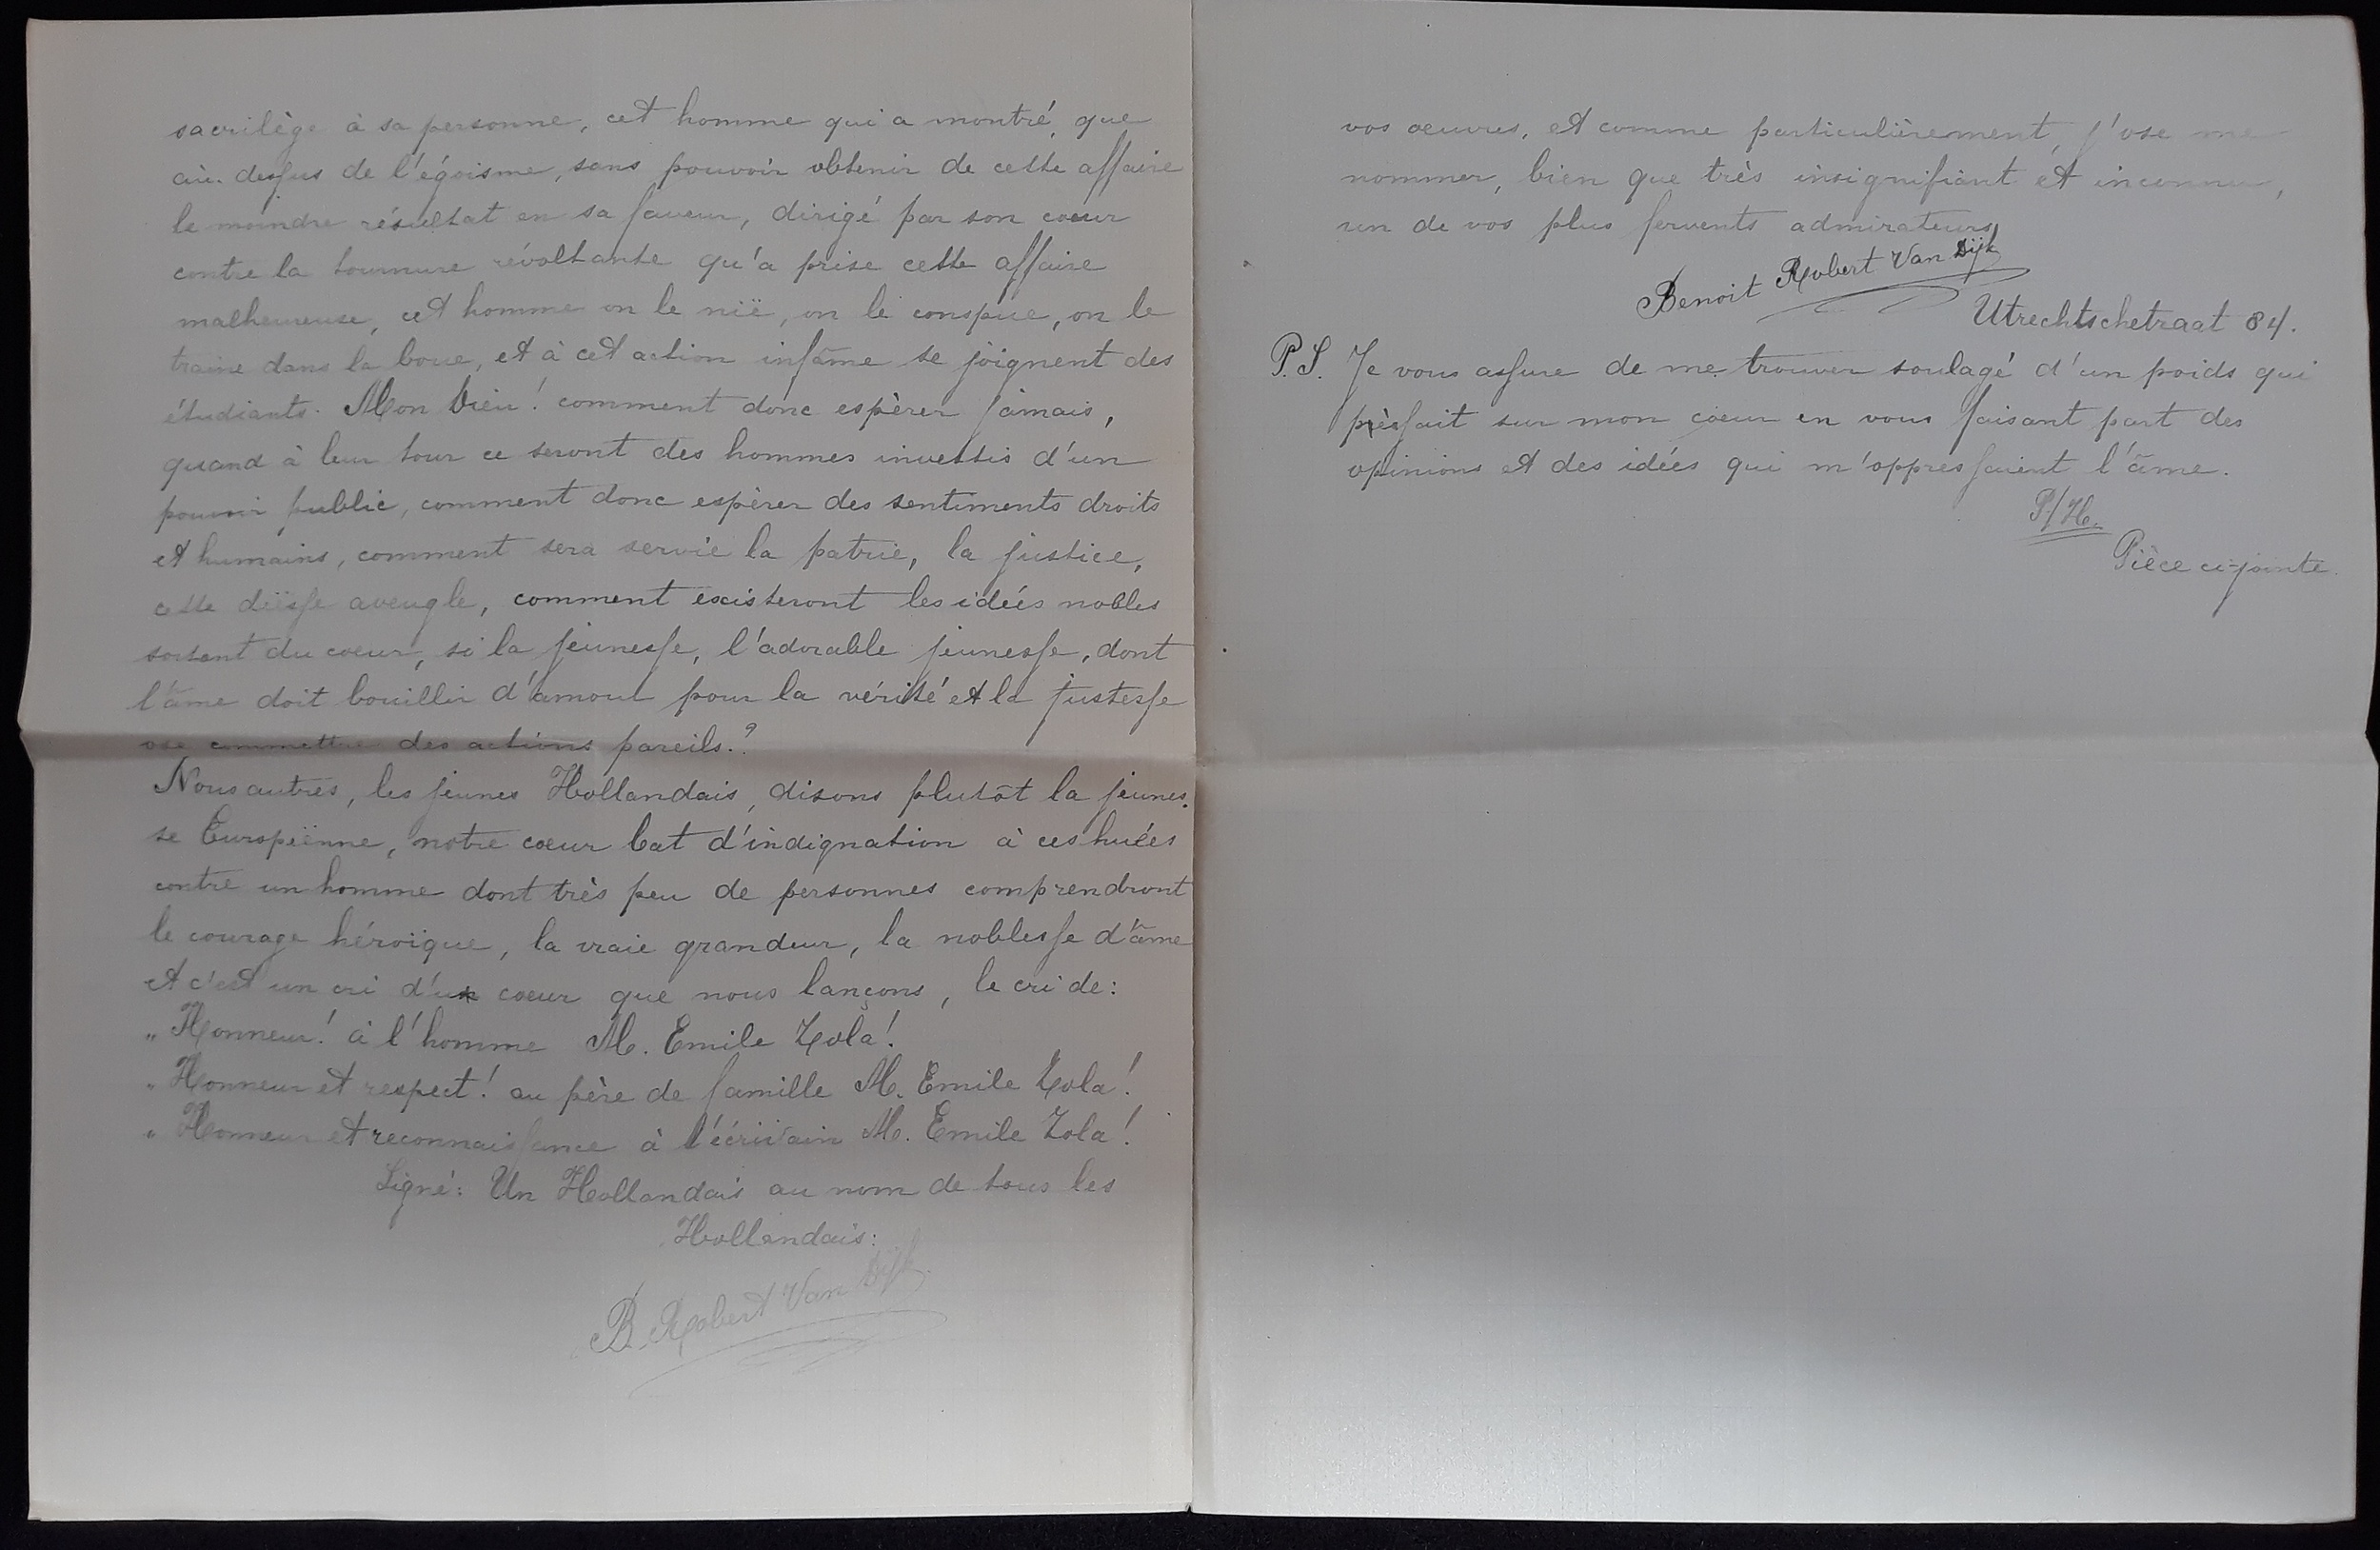 sacrilège à sa personne, cet homme qui a montré, que
au-dessus de l'égoisme, sans pouvoir obtenir de cette affaire
le moindre résultat en sa faveur, dirigé par son coeur
contre la tournure révoltante qu'a prise cette affaire
malheureuse, cet homme on le nië, on le conspue, on le
traine dans la boue, et à cet action infâme se joignent des
étudiants. Mon Dieu! comment donc espèrer jamais,
quand à leur tour ce seront des hommes investis d'un
pouvoir public, comment donc espèrer des sentiments droits
et humains, comment sera servie la patrie, la justice,
cette déesse aveugle, comment existeront les idées nobles
sortant du coeur, si la jeunesse, l'adorable jeunesse, dont
l'âme doit bouillir d'amour pour la vérité et la justesse
ose commettre des actions pareils.?
Nous autres, les jeunes Hollandais, disons plutôt la jeunes-
se Européenne, notre coeur bat d'indignation à ces huées
contre un homme dont très peu de personnes comprendront
le courage héroïque, la vraie grandeur, la noblesse d'âme
et c'est un cri d'un coeur que nous lançons, le cri de:
„Honneur! à l'homme M. Emile Zola!
„Honneur et respect! au père de famille M. Emile Zola!
„Honneur et reconnaissance à l'écrivain M. Emile Zola!
Signé: Un Hollandais au nom de tous les
Hollandais:
B. Robert Van Dijk
vos oeuvres, et comme particulièrement, j'ose me
nommer, bien que très insignifiant et inconnu,
un de vos plus fervents admirateurs
Benoit Robert Van Dijk
Utrechtschetraat 84.
P.S. Je vous assure de me trouver soulagé d'un poids qui
pèssait sur mon coeur en vous faisant part des
opinions et des idées qui m'oppressaient l'âme.
Pièce ci-jointe.